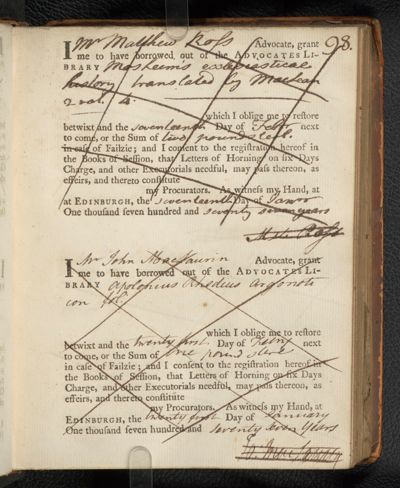 98.
I Mr Matthew Ross Advocate, grant
me to have borrowed out of the ADVOCATES LI-
BRARY Mosheim's ecclesiastical
history translated by Maclean
2 vol. 4.
which I oblige me to reſtore
betwixt and the seventeenth Day of Febr next
to come, or the Sum of two pound sterl.
in caſe of Failzie; and I conſent to the regiſtration hereof in
the Books of Seſſion, that Letters of Horning on ſix Days
Charge, and other Executorials needful, may paſs thereon, as
effeirs, and thereto conſtitute
my Procurators. As witneſs my Hand, at
at EDINBURGH, the seventeenth Day of Janr
One thouſand ſeven hundred and seventy seven years
Matt. Ross
I Mr John MacLaurin Advocate, grant
me to have borrowed out of the ADVOCATES LI-
BRARY Apolonius Rhodius Argonoti
con fol
which I oblige me to reſtore
betwixt and the twenty first Day of Febry next
to come, or the Sum of one pound sterl
in caſe of Failzie; and I conſent to the regiſtration hereof in
the Books of Seſſion, that Letters of Horning on ſix Days
Charge, and other Executorials needful, may paſs thereon, as
effeirs, and thereto conſtitute
my Procurators. As witneſs my Hand, at
EDINBURGH, the twenty first Day of January
One thouſand ſeven hundred and seventy seven years